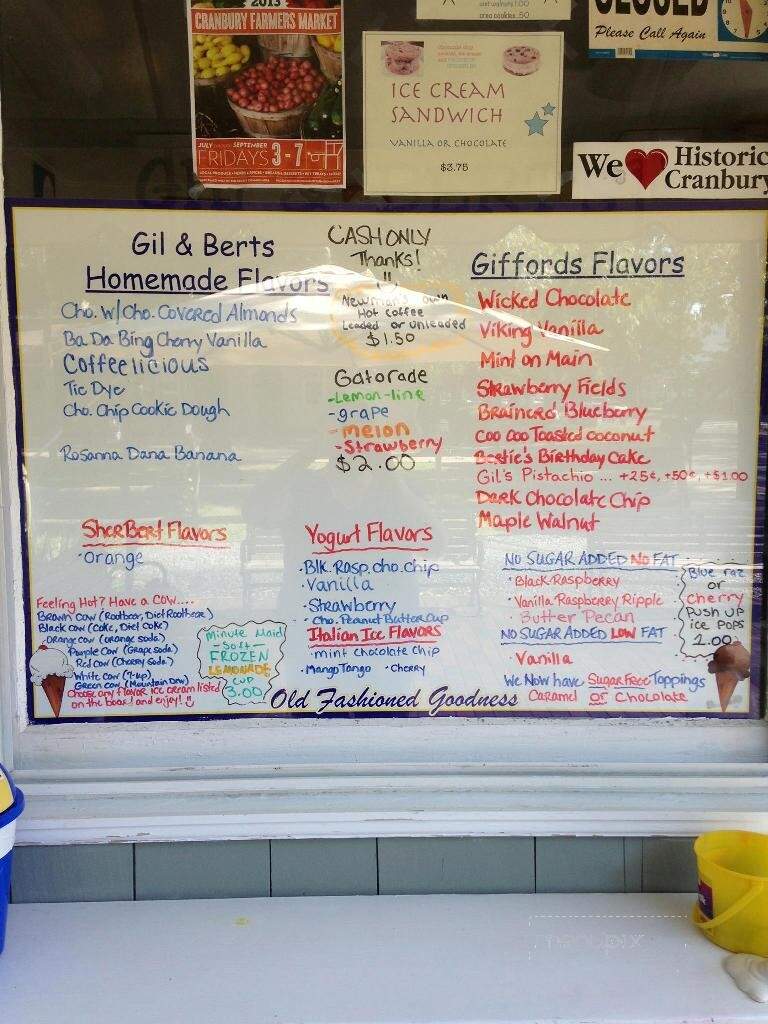 2013
CRANBURY FARMERS MARKET
JULY SEPTEMBER
FRIDAYS 3-7
wet walnuts 1.00
oreo cookies .50
ICE CREAM
SANDWICH
VANILLA OR CHOCOLATE
$3.75
CLOSED
Please Call Again
We Historic
Cranbury
Gil & Berts
Homemade Flavors
Cho. W/Cho. Covered Almonds
Ba Da Bing Cherry Vanilla
Coffeelicious
Tie Dye
Cho. Chip Cookie Dough
Rosanna Dana Banana
SherBert Flavors
·Orange
Feeling Hot? Have a COW....
Brown Cow (Rootbeer, Diet Rootbeer)
Black Cow (Coke, Diet Coke)
Orange Cow (orange soda)
Purple Cow (Grape soda)
Red Cow (Cherry Soda)
White Cow (7-up)
Green Cow (Mountain Dew)
Choose any flavor ice cream listed
on the board and enjoy!
Minute Maid
-Soft-
FROZEN
LEMONADE
CUP
3.00
CASH ONLY
Thanks!
Newman's Own
Hot Coffee
Leaded or unleaded
$1.50
Gatorade
-Lemon-line
-grape
-melon
-Strawberry
$2.00
Yogurt Flavors
·Blk. Rasp. cho. chip
·Vanilla
·Strawberry
·Cho. Peanut Butter Cup
Italian Ice Flavors
·mint chocolate chip
·Mango Tango ·Cherry
Giffords Flavors
Wicked Chocolate
Viking Vanilla
Mint on Main
Strawberry Fields
Brainerd Blueberry
Coo Coo Toasted coconut
Bertie's Birthday Cake
Gil's Pistachio ... +25¢, +50¢, +$1.00
Dark Chocolate Chip
Maple Walnut
NO SUGAR ADDED NO FAT
·Black Raspberry
·Vanilla Raspberry Ripple
·Butter Pecan
NO SUGAR ADDED LOW FAT
·Vanilla
We Now have Sugar Free Toppings
Caramel or Chocolate
Blue raz
or
cherry
PUSH UP
ice POPS
2.00
Old Fashioned Goodness